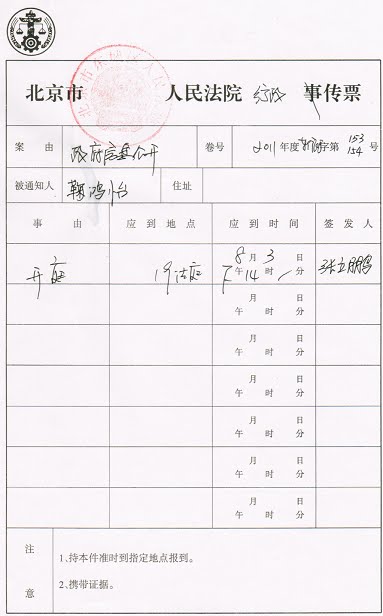 北京市 人民法院 行政 事传票
案由 政府信息公开 卷号 2011年度 字第 153 154 号
被通知人 鞠鸿怡 住址
事由 应到地点 应到时间 签发人
开庭 19法庭 8月3日 下午14时 分 张立鹏
月 日
午 时 分
月 日
午 时 分
月 日
午 时 分
月 日
午 时 分
月 日
午 时 分
月 日
午 时 分
注意
1、持本件准时到指定地点报到。
2、携带证据。